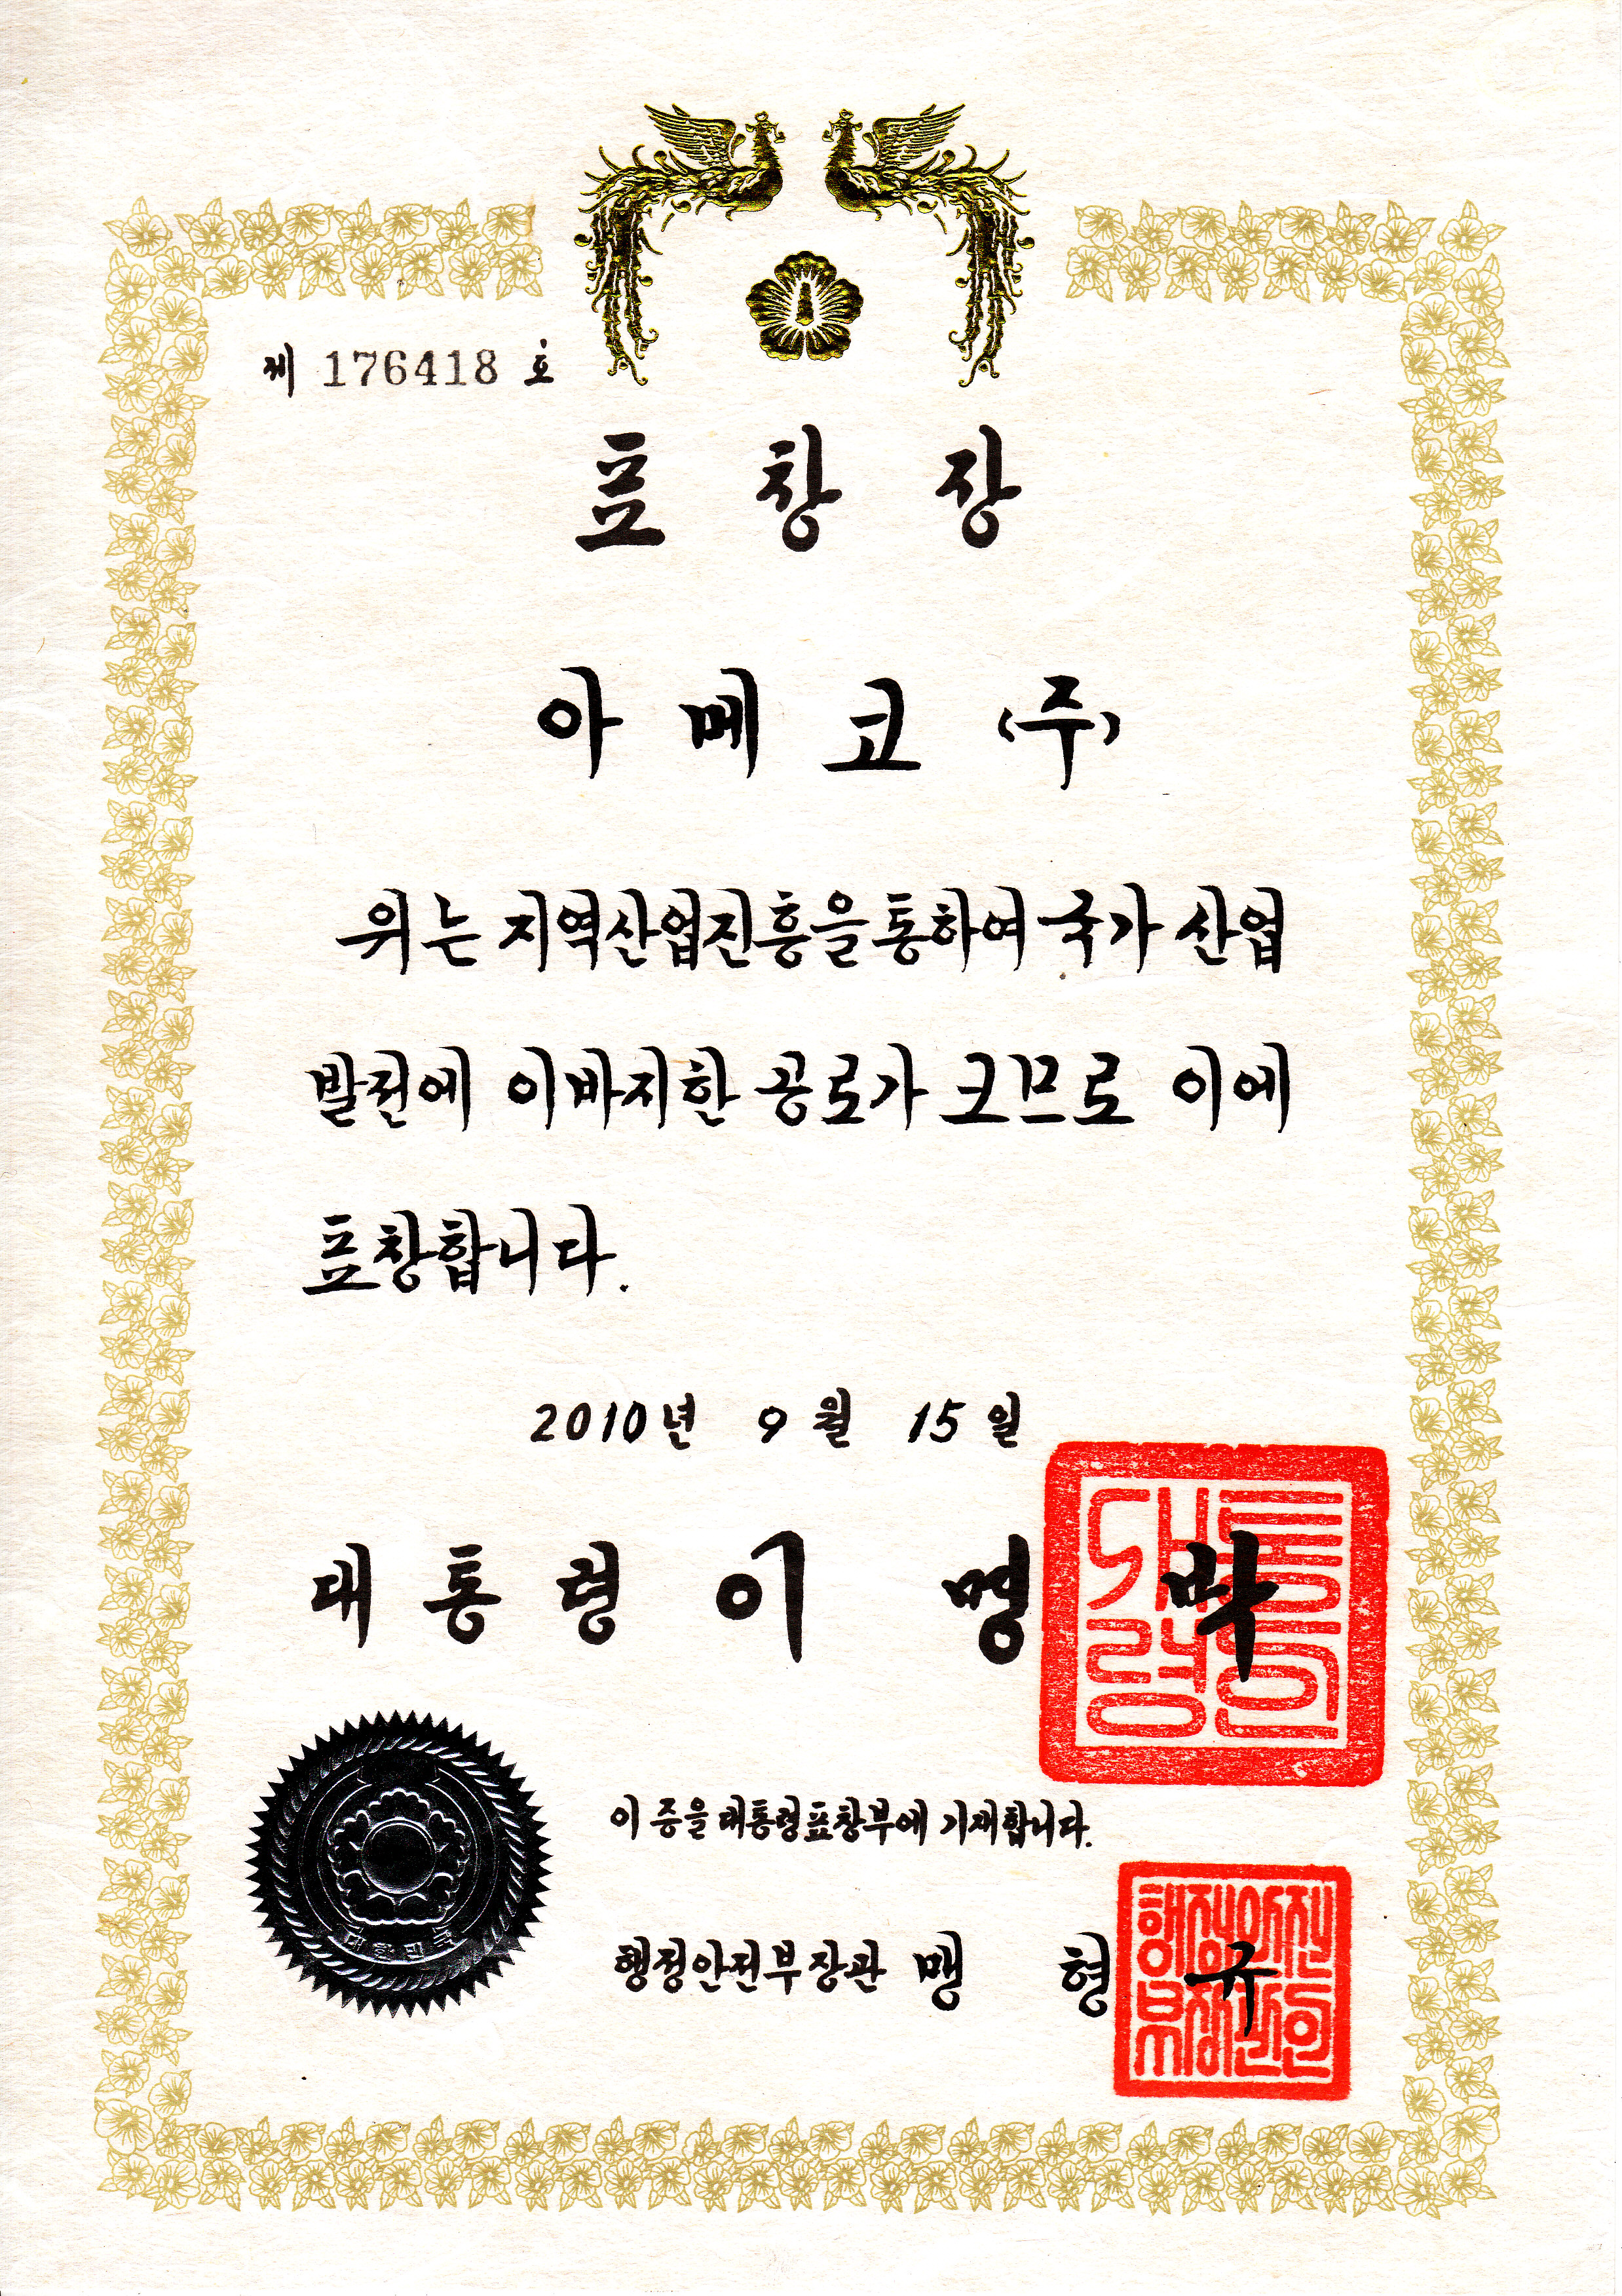 제 176418 호
표 창 장
아 메 코 (주)
위는 지역산업진흥을 통하여 국가 산업
발전에 이바지한 공로가 크므로 이에
표창합니다.
2010년 9월 15일
대통령 이 명 박
대통령의인
이 증을 대통령표창부에 기재합니다.
대한민국
행정안전부장관 맹 형 규
행정안전부장관의인